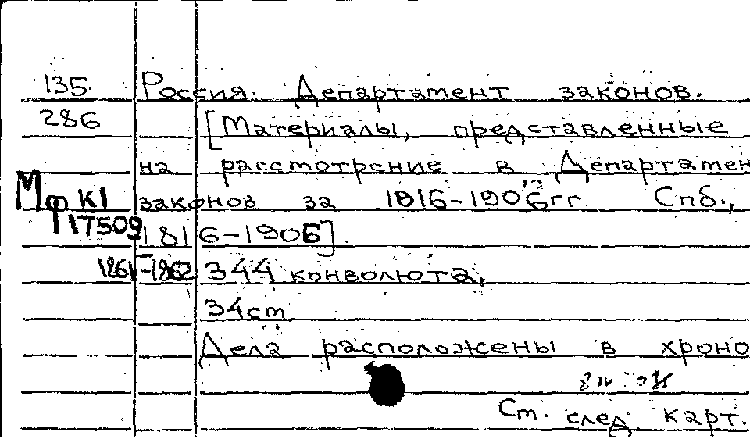 135. Россия. Департамент законов.
286 [Материалы, представленные
на рассмотрение в Департамен
Мф К1 законов за 1816-1906 гг. Спб.,
17509 1816-1906].
1861-1862 344 конволюта,
34 cm
Дела расположены в хроно
См. след. карт.